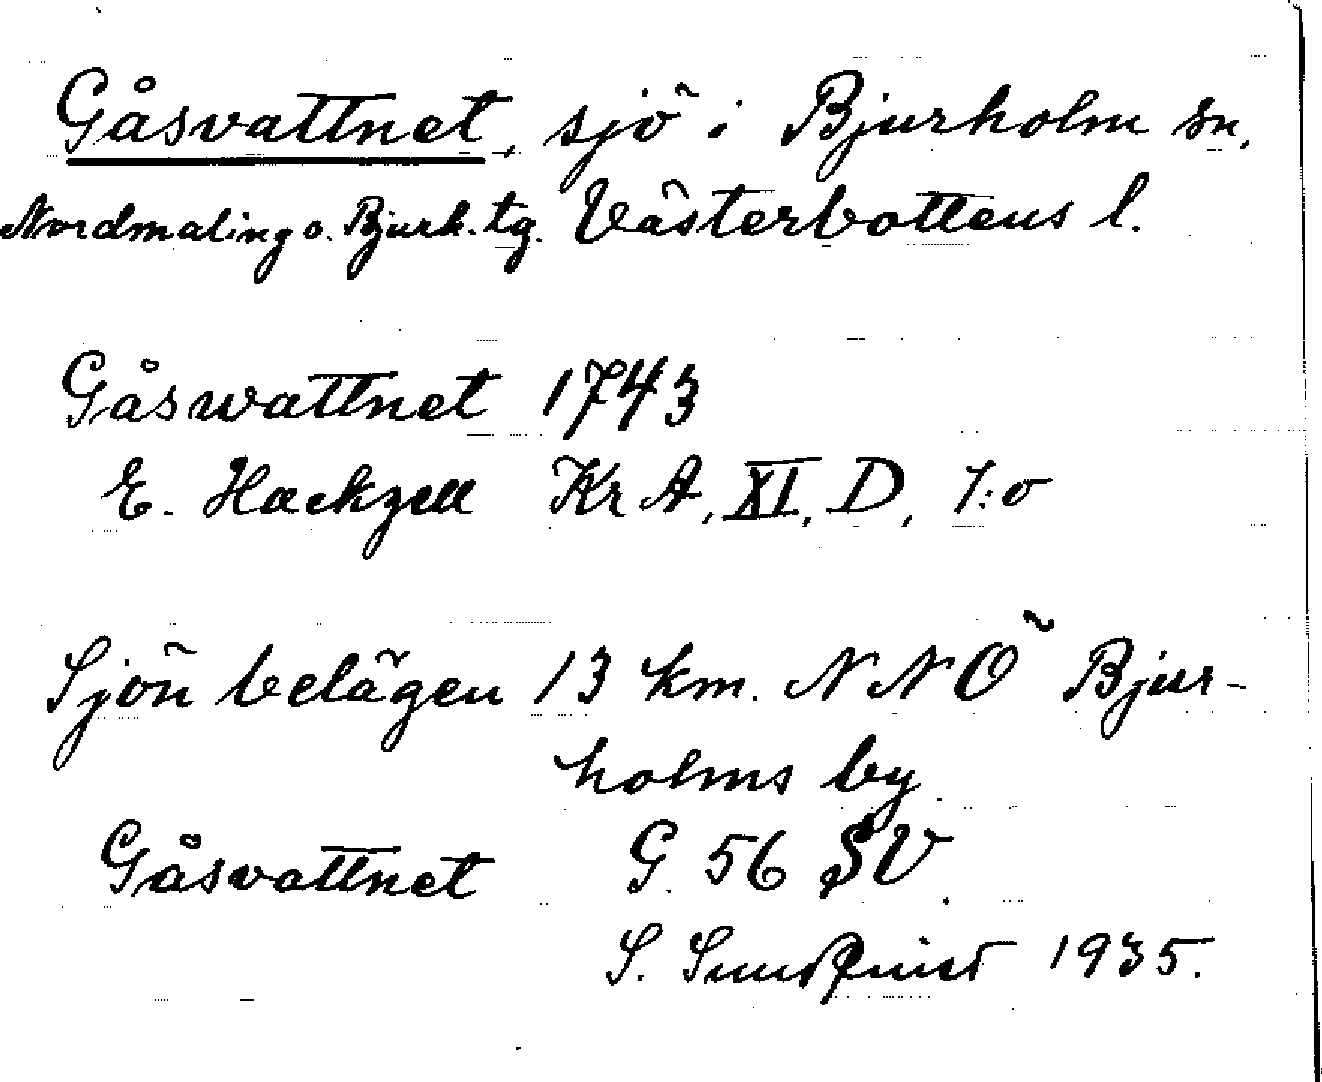 Gåsvattnet, sjö i Bjurholm sn,
Nordmaling o. Bjurh. tg. Västerbottens l.
Gåswattnet 1743
E. Hackzell Kr A, XI, D, 1:o
Sjön belägen 13 km. NNÖ Bjur-
holms by
Gåsvattnet G. 56 SV.
S. Sundqvist 1935.